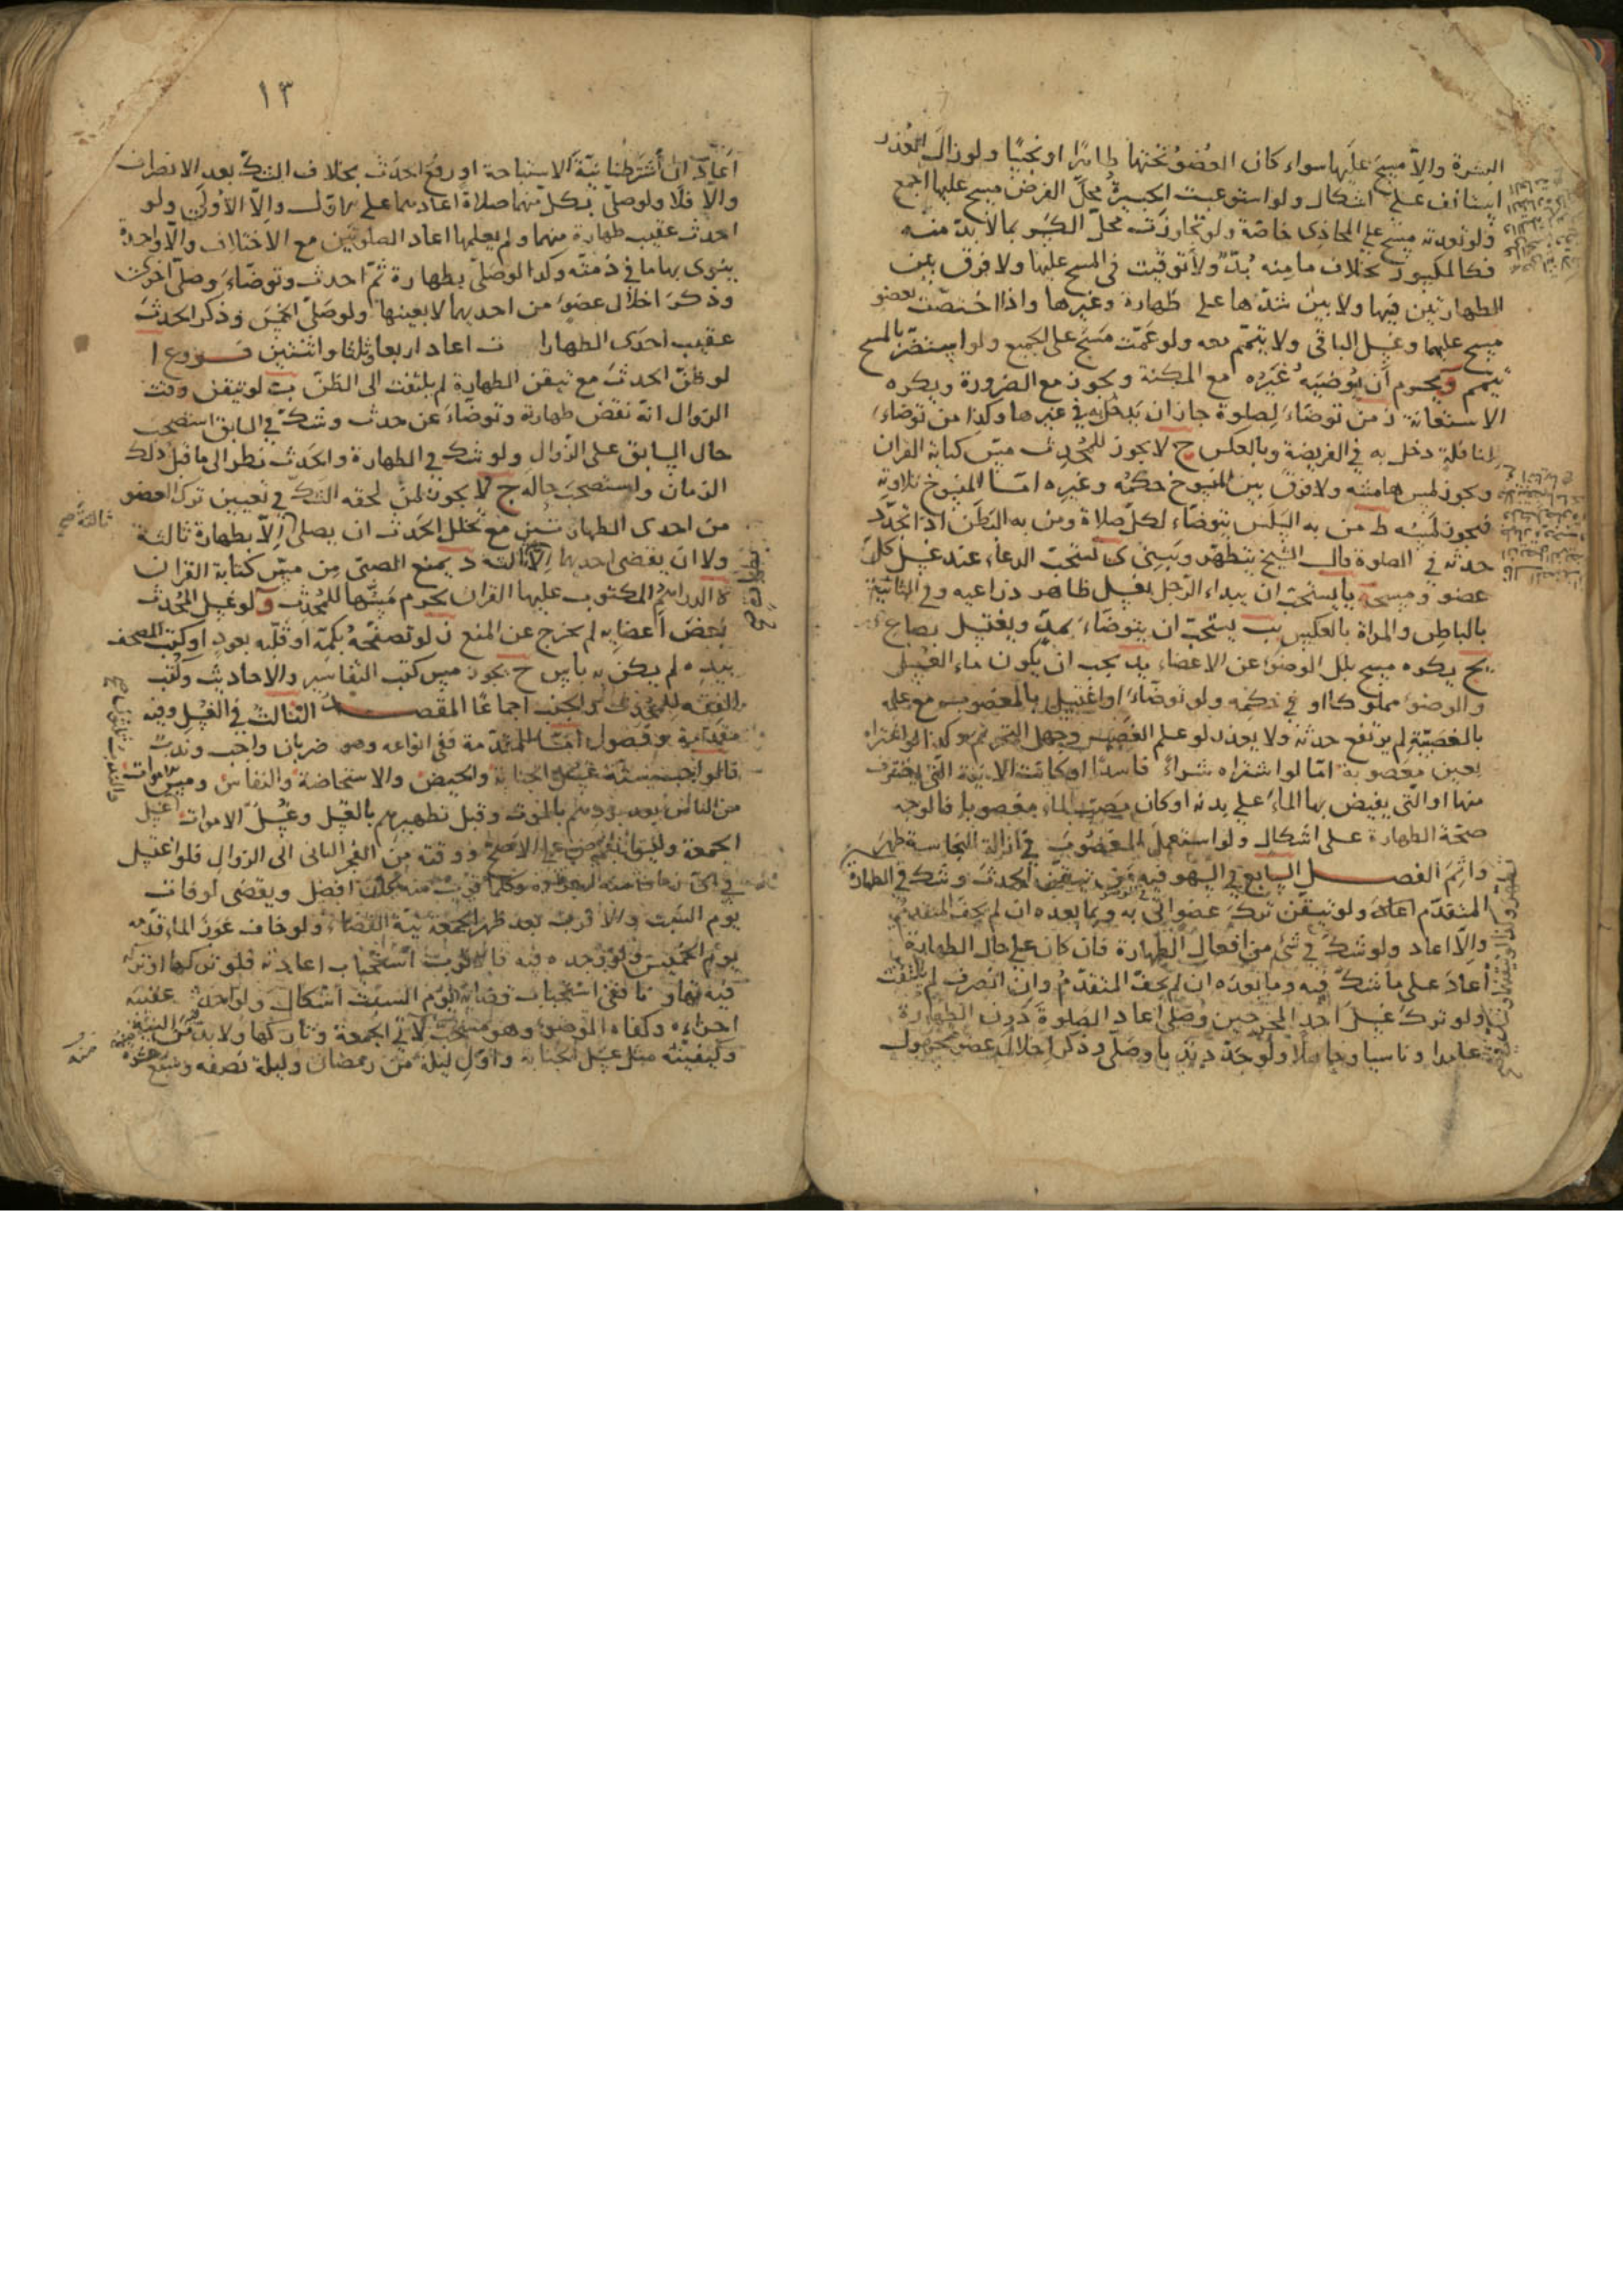 البشرة والا مسح عليها سواء كان العضو تحتها طاهرا او نجسا ولو زال العذر
استانف على اشكال ولو استوعبت الجبيرة محل الفرض مسح عليها اجمع
ولو تعدته مسح على المحاذى خاصة ولو تجاوزت محل الكسر بما لا بد منه
فكالمكسور بخلاف ما منه بد ولا توقيت فى المسح عليها ولا فرق بين
الطهارتين فيها ولا بين شدها على طهارة وغيرها واذا اختصت بعضو
مسح عليها وغسل الباقى ولا يتيمم معه ولو عمت مسح على الجميع ولو استضر بالمسح
تيمم و يحرم أن يوضيه غيره مع المكنة ويجوز مع الضرورة ويكره
الاستعانة ز من توضاء لصلوة جاز ان يدخل به فى غيرها وكذا من توضاء
لنافلة دخل به فى الفريضة وبالعكس ح لا يجوز للمحدث مس كتابة القران
ويجوز لمس هامشه ولا فرق بين المنسوخ حكمه وغيره اما المنسوخ تلاوته
فيجوز لمسه ط من به السلس يتوضاء لكل صلاة ومن به البطن اذا تجدد
حدثه فى الصلوة قال الشيخ يتطهر ويبنى ى يستحب الدعاء عند غسل كل
عضو ومسحه يا يستحب ان يبداء الرجل بغسل ظاهر ذراعيه وفى الثانية
بالباطن والمراة بالعكس يب يستحب ان يتوضاء بمد ويغتسل بصاع
يج يكره مسح بلل الوضوء عن الاعضاء يد يجب ان يكون ماء الغسل
والوضوء مملوكا او فى حكمه ولو توضاء او اغتسل بالمغصوب مع علم
بالغصبية لم يرتفع حدثه ولا يعذر لو علم الغصب وجهل التحريم وكذا لو اغتراه
بعين مغصوبة اما لو اشتراه شراء فاسدا او كانت الانية التى يغترف
منها او التى يفيض بها الماء على بدنه او كان مصب الماء مغصوبا فالوجه
صحة الطهارة على اشكال ولو استعمل المغصوب فى ازالة النجاسة طهر
واثم الفصل السابع فى السهو فيه من تيقن الحدث وشك فى الطهارة
المتقدم اعاد ولو تيقن ترك عضو اتى به وبما بعده ان لم يجف المتقدم
والا اعاد ولو شك فى شئ من افعال الطهارة فان كان على حال الطهارة
أعاد على ما شك فيه وما بعده ان لم يجف المتقدم وان انصرف لم يلتفت
ولو ترك غسل احد المخرجين وصلى اعاد الصلوة دون الطهارة
عامدا وناسيا وجاهلا ولو جدد ندبا وصلى وذكر اخلال عضو مجهول
١٣
أعاد ان أشترطنا نية الاستباحة او رفع الحدث بخلاف الشك بعد الانصراف
والا فلا ولو صلى بكل منهما صلاة اعادهما على الاول والا الأولى ولو
احدث عقيب طهارة منهما ولم يعلمها اعاد الصلوتين مع الاختلاف والا واحدة
ينوى بها ما فى ذمته وكذا لو صلى بطهارة ثم احدث وتوضاء وصلى اخرى
وذكر اخلال عضو من احديهما لا بعينها ولو صلى الخمس وذكر الحدث
عقيب احدى الطهارات اعاد اربعا وثلثا واثنتين فروع ا
لو ظن الحدث مع تيقن الطهارة لم يلتفت الى الظن ب لو تيقن وقت
الزوال انه نقض طهارة وتوضاء عن حدث وشك فى السابق استصحب
حال السابق على الزوال ولو شك فى الطهارة والحدث نظر الى ما قبل ذلك
الزمان واستصحب حاله ج لا يجوز لمن لحقه الشك فى تعيين ترك العضو
من احدى الطهارتين مع تخلل الحدث ان يصلى إلا بطهارة ثالثة
ولا ان يقضى احديهما إلا ثالثة د يمنع الصبى من مس كتابة القران
ه الدراهم المكتوب عليها القران يحرم مسها للمحدث و لو غسل المحدث
بعض أعضايه لم يخرج عن المنع ز لو تصفحه بكمه او قلبه بعود او كتب المصحف
بيده لم يكن به بأس ح يجوز مس كتب التفاسير والاحاديث وكتب
الفقه للمحدث والجنب اجماعا المقصد الثالث فى الغسل وفيه
مقدمة وفصول اما المقدمة ففى انواعه وهو ضربان واجب وندب
فالواجب ستة غسل الجنابة والحيض والاستحاضة والنفاس ومس الاموات
من الناس بعد بردهم بالموت وقبل تطهيرهم بالغسل وغسل الاموات
الجمعة وليس بفرض على الاصح ووقته من الفجر الثانى الى الزوال فلو اغتسل
وكلما قرب منه كان افضل ويقضى لو فات
يوم السبت والاقرب بعد ظهر الجمعة نية القضاء ولو خاف عوز الماء قدمه
يوم الخميس فلو وجده فيه فالاقرب استحباب اعادته فلو تركها او تركه
فيه تهاونا ففى استحباب قضائه يوم السبت اشكال ولو احدث عقيبه
اجزاءه وكفاه الوضوء وهو مستحب لآتى الجمعة وتاركها ولا بد فيه من النية
وكيفيته مثل غسل الجنابة واول ليلة من رمضان وليلة نصفه وسبع عشرة